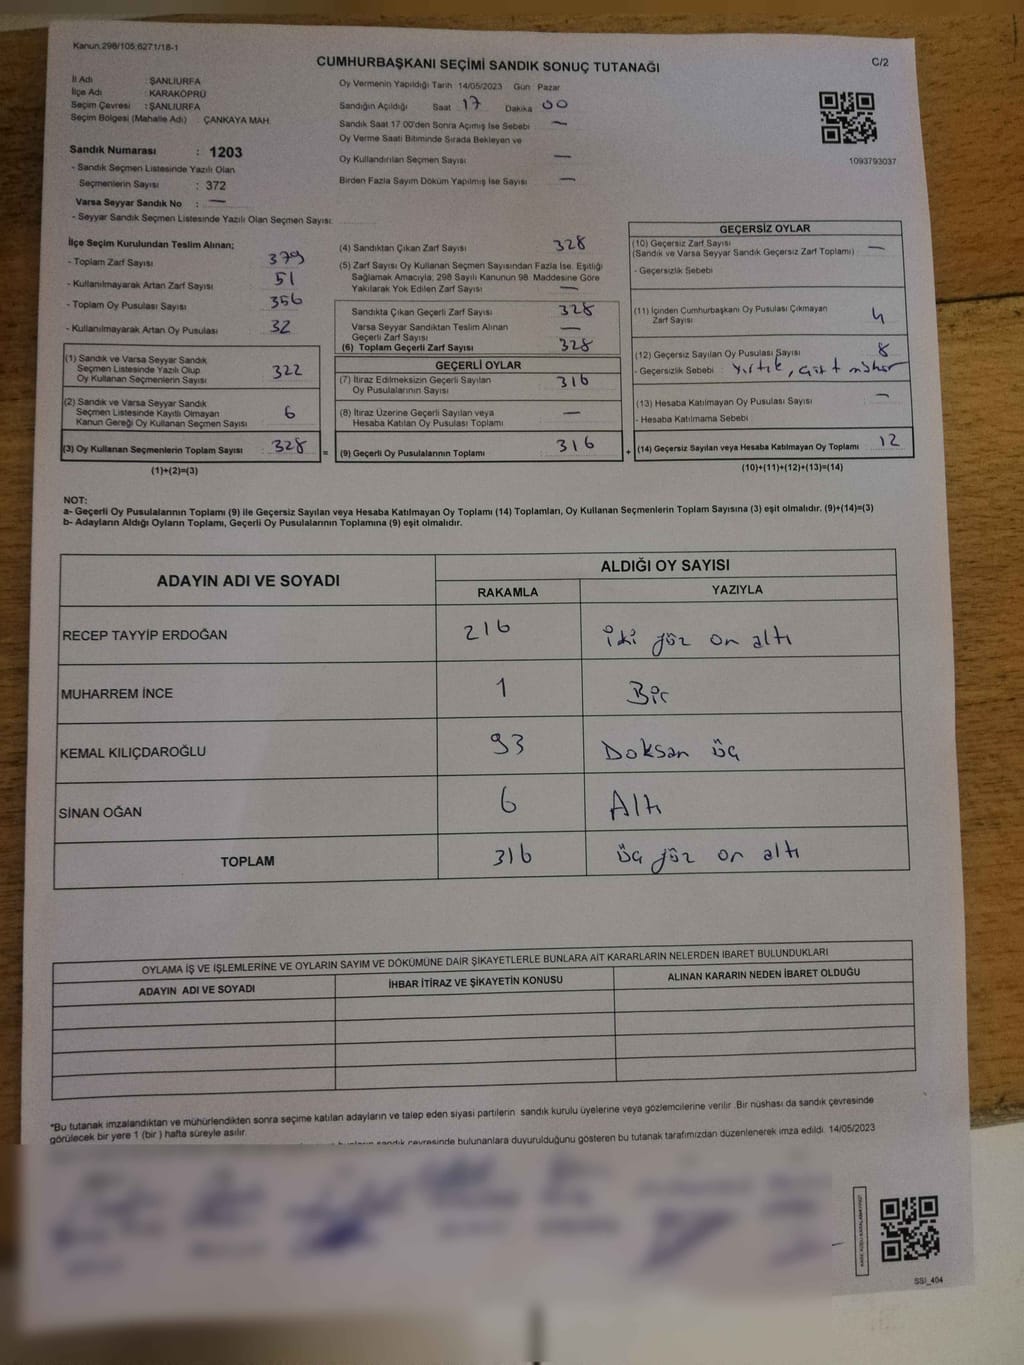 Kanun.298/105;6271/18-1
CUMHURBAŞKANI SEÇİMİ SANDIK SONUÇ TUTANAĞI
C/2
İl Adı : ŞANLIURFA
İlçe Adı : KARAKÖPRÜ
Seçim Çevresi : ŞANLIURFA
Seçim Bölgesi (Mahalle Adı) : ÇANKAYA MAH.
Sandık Numarası : 1203
- Sandık Seçmen Listesinde Yazılı Olan
Seçmenlerin Sayısı : 372
Varsa Seyyar Sandık No : —
- Seyyar Sandık Seçmen Listesinde Yazılı Olan Seçmen Sayısı:
Oy Vermenin Yapıldığı Tarih 14/05/2023 Gün Pazar
Sandığın Açıldığı Saat 17 Dakika 00
Sandık Saat 17:00'den Sonra Açılmış İse Sebebi —
Oy Verme Saati Bitiminde Sırada Bekleyen ve
Oy Kullandırılan Seçmen Sayısı —
Birden Fazla Sayım Döküm Yapılmış İse Sayısı —
1093793037
İlçe Seçim Kurulundan Teslim Alınan;
- Toplam Zarf Sayısı 379
- Kullanılmayarak Artan Zarf Sayısı 51
- Toplam Oy Pusulası Sayısı 356
- Kullanılmayarak Artan Oy Pusulası 32
(1) Sandık ve Varsa Seyyar Sandık
Seçmen Listesinde Yazılı Olup
Oy Kullanan Seçmenlerin Sayısı 322
(2) Sandık ve Varsa Seyyar Sandık
Seçmen Listesinde Kayıtlı Olmayan
Kanun Gereği Oy Kullanan Seçmen Sayısı 6
(3) Oy Kullanan Seçmenlerin Toplam Sayısı : 328
(1)+(2)=(3)
(4) Sandıktan Çıkan Zarf Sayısı 328
(5) Zarf Sayısı Oy Kullanan Seçmen Sayısından Fazla İse, Eşitliği
Sağlamak Amacıyla, 298 Sayılı Kanunun 98. Maddesine Göre
Yakılarak Yok Edilen Zarf Sayısı —
Sandıkta Çıkan Geçerli Zarf Sayısı 328
Varsa Seyyar Sandıktan Teslim Alınan
Geçerli Zarf Sayısı —
(6) Toplam Geçerli Zarf Sayısı 328
GEÇERLİ OYLAR
(7) İtiraz Edilmeksizin Geçerli Sayılan
Oy Pusulalarının Sayısı 316
(8) İtiraz Üzerine Geçerli Sayılan veya
Hesaba Katılan Oy Pusulası Toplamı —
= (9) Geçerli Oy Pusulalarının Toplamı 316
GEÇERSİZ OYLAR
(10) Geçersiz Zarf Sayısı
(Sandık ve Varsa Seyyar Sandık Geçersiz Zarf Toplamı) —
- Geçersizlik Sebebi :
(11) İçinden Cumhurbaşkanı Oy Pusulası Çıkmayan
Zarf Sayısı 4
(12) Geçersiz Sayılan Oy Pusulası Sayısı 8
- Geçersizlik Sebebi : Yırtık, Çift mühür
(13) Hesaba Katılmayan Oy Pusulası Sayısı —
- Hesaba Katılmama Sebebi :
+ (14) Geçersiz Sayılan veya Hesaba Katılmayan Oy Toplamı 12
(10)+(11)+(12)+(13)=(14)
NOT:
a- Geçerli Oy Pusulalarının Toplamı (9) ile Geçersiz Sayılan veya Hesaba Katılmayan Oy Toplamı (14) Toplamları, Oy Kullanan Seçmenlerin Toplam Sayısına (3) eşit olmalıdır. (9)+(14)=(3)
b- Adayların Aldığı Oyların Toplamı, Geçerli Oy Pusulalarının Toplamına (9) eşit olmalıdır.
ADAYIN ADI VE SOYADI
ALDIĞI OY SAYISI
RAKAMLA YAZIYLA
RECEP TAYYİP ERDOĞAN 216 iki yüz on altı
MUHARREM İNCE 1 Bir
KEMAL KILIÇDAROĞLU 93 Doksan üç
SİNAN OĞAN 6 Altı
TOPLAM 316 üç yüz on altı
OYLAMA İŞ VE İŞLEMLERİNE VE OYLARIN SAYIM VE DÖKÜMÜNE DAİR ŞİKAYETLERLE BUNLARA AİT KARARLARIN NELERDEN İBARET BULUNDUKLARI
ADAYIN ADI VE SOYADI İHBAR İTİRAZ VE ŞİKAYETİN KONUSU ALINAN KARARIN NEDEN İBARET OLDUĞU
*Bu tutanak imzalandıktan ve mühürlendikten sonra seçime katılan adayların ve talep eden siyasi partilerin sandık kurulu üyelerine veya gözlemcilerine verilir. Bir nüshası da sandık çevresinde
görülecek bir yere 1 (bir) hafta süreyle asılır.
sandık çevresinde bulunanlara duyurulduğunu gösteren bu tutanak tarafımızdan düzenlenerek imza edildi. 14/05/2023
SSI_404